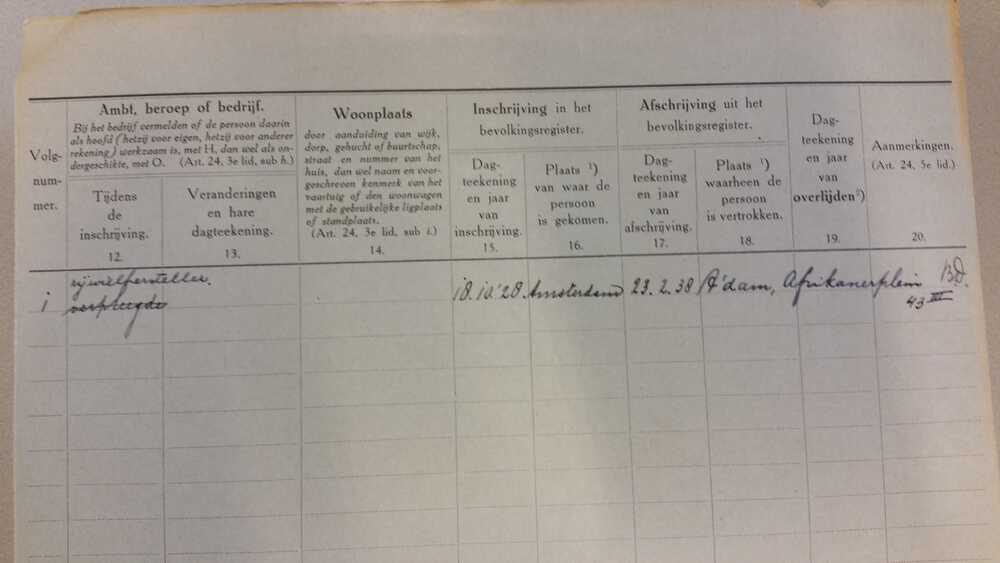 Volg-
num-
mer.
Ambt, beroep of bedrijf.
Bij het bedrijf vermelden of de persoon daarin
als hoofd (hetzij voor eigen, hetzij voor anderer
rekening) werkzaam is, met H, dan wel als on-
dergeschikte, met O. (Art. 24, 3e lid, sub h.)
Tijdens
de
inschrijving.
12.
Veranderingen
en hare
dagteekening.
13.
Woonplaats
door aanduiding van wijk,
dorp, gehucht of buurtschap,
straat en nummer van het
huis, dan wel naam en voor-
geschreven kenmerk van het
vaartuig of den woonwagen
met de gebruikelijke ligplaats
of standplaats.
(Art. 24, 3e lid, sub i.)
14.
Inschrijving in het
bevolkingsregister.
Dag-
teekening
en jaar
van
inschrijving.
15.
Plaats ¹)
van waar de
persoon
is gekomen.
16.
Afschrijving uit het
bevolkingsregister.
Dag-
teekening
en jaar
van
afschrijving.
17.
Plaats ¹)
waarheen de
persoon
is vertrokken.
18.
Dag-
teekening
en jaar
van
overlijden²)
19.
Aanmerkingen.
(Art. 24, 5e lid.)
20.
rijwielhersteller.
1 verpleegde 18.10.'28. Amsterdam 23.2.38 A'dam, Afrikanerplein
43 III